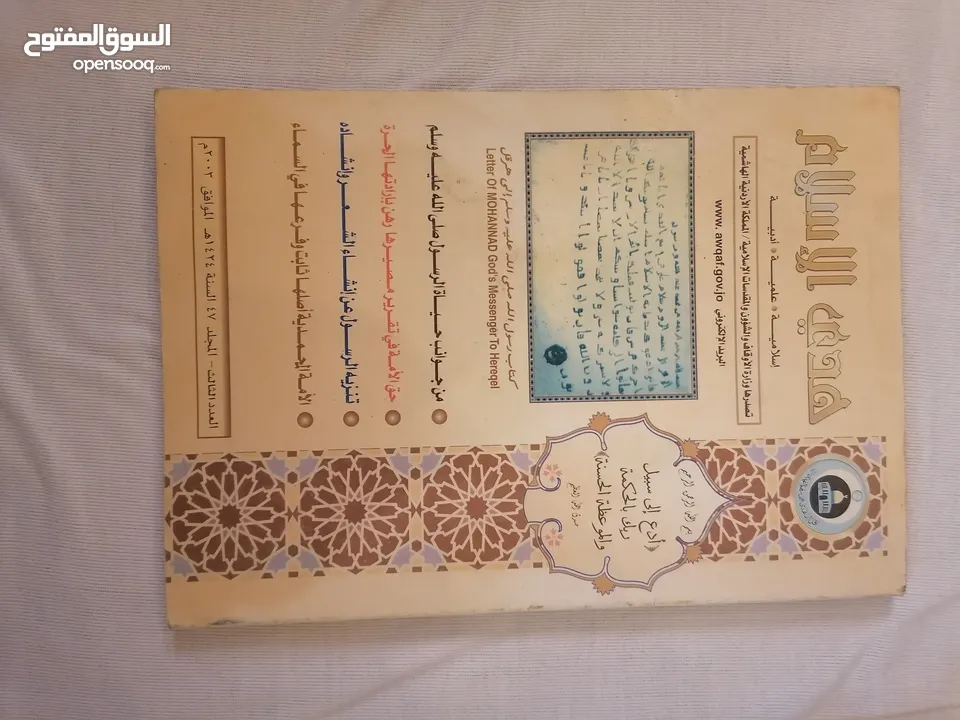 السوق المفتوح
opensooq.com
هدي الإسلام
إسلامية * علمية * أدبية
تصدرها وزارة الأوقاف والشؤون والمقدسات الإسلامية / المملكة الأردنية الهاشمية
البريد الالكتروني www. awqaf.gov.jo
﴿أدع إلى سبيل
ربك بالحكمة
والموعظة الحسنة﴾
كتاب رسول الله صلى الله عليه وسلم إلى هرقل
Letter Of MOHANNAD God's Messenger To Hereqel
من جوانب حياة الرسول صلى الله عليه وسلم
حق الأمة في تقرير مصيرها رهن بإرادتها الحرة
تنزيه الرسول عن إنشاء الشعر وانشاده
الأمة المحمدية أصلها ثابت وفرعها في السماء
العدد الثالث - المجلد ٤٧ السنة ١٤٢٤هـ الموافق ٢٠٠٣م